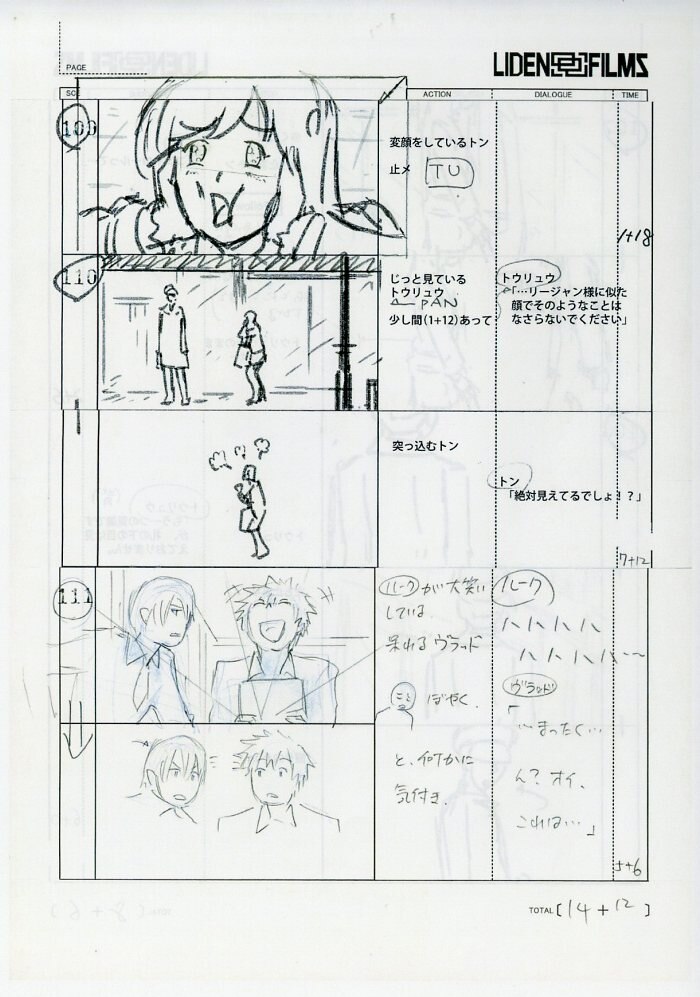 PAGE
LIDENFILMS
SC
ACTION
DIALOGUE
TIME
変顔をしているトン
止メ
TU
1+18
110
じっと見ている
トウリュウ
PAN
少し間(1+12)あって
トウリュウ
「…リージャン様に似た
顔でそのようなことは
なさらないでください」
突っ込むトン
トン
「絶対見えてるでしょ!?」
7+12
111
ルークが大笑い
している
呆れるヴラッド
ぼやく.
と、何かに
気付き.
ルーク
ハハハハ
ハハハハ
ヴラッド
「
…まったく…
ん? オイ、
これは…」
5+6
TOTAL [14+12]